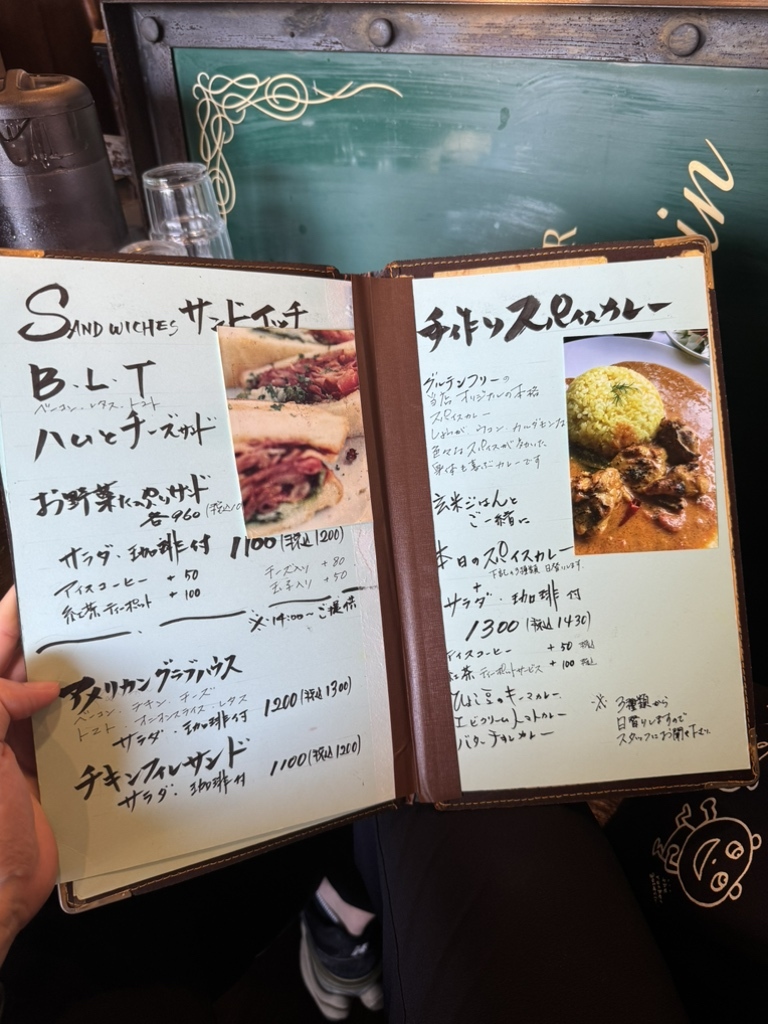 SANDWICHES サンドイッチ
B.L.T
ベーコン.レタス.トマト
ハムとチーズサンド
お野菜たっぷりサンド
各960(税込10
サラダ・珈琲付 1100(税込1200)
アイスコーヒー +50
チーズ入り +80
紅茶ティーポット +100
玉子入り +50
※14:00〜ご提供
アメリカンクラブハウス
ベーコン チキン チーズ
トマト オニオンスライス レタス
サラダ・珈琲付 1200(税込1300)
チキンフィレサンド
サラダ・珈琲付 1100(税込1200)
手作りスパイスカレー
グルテンフリーの
当店オリジナルの本格
スパイスカレー
しょうが、ウコン、カルダモンなど
色々なスパイスが
カレーです
玄米ごはんと
ご一緒に
本日のスパイスカレー
下記の3種類 日替りします
+
サラダ・珈琲付
1300(税込1430)
アイスコーヒー +50 税込
紅茶 ティーポットサービス +100 税込
ひよこ豆のキーマカレー
エビクリームトマトカレー
バターチキンカレー
※3種類から
日替りしますので
スタッフにお聞き下さい
in
R